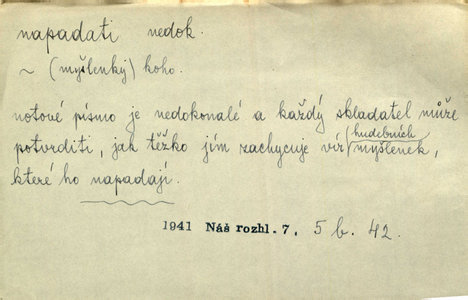 napadati nedok.
~ (myšlenky) koho.
notové písmo je nedokonalé a každý skladatel může
potvrditi, jak těžko jím zachycuje vír hudebních myšlenek,
které ho napadají.
1941 Náš rozhl. 7, 5 b. 42.